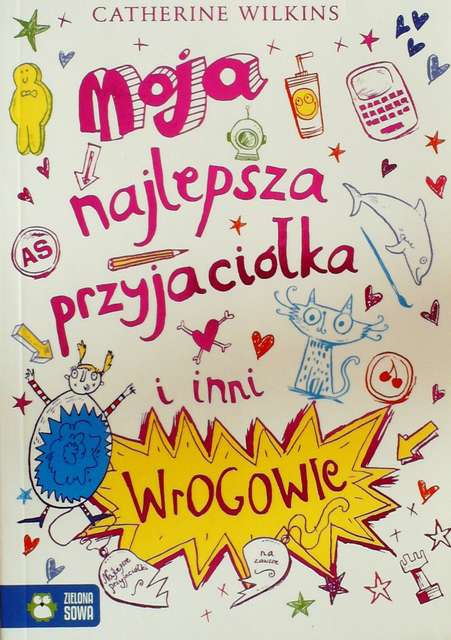 CATHERINE WILKINS
Moja
najlepsza
przyjaciółka
i inni
WROGOWIE
AŚ
Najlepsze
przyjaciółki
na
zawsze
ZIELONA
SOWA